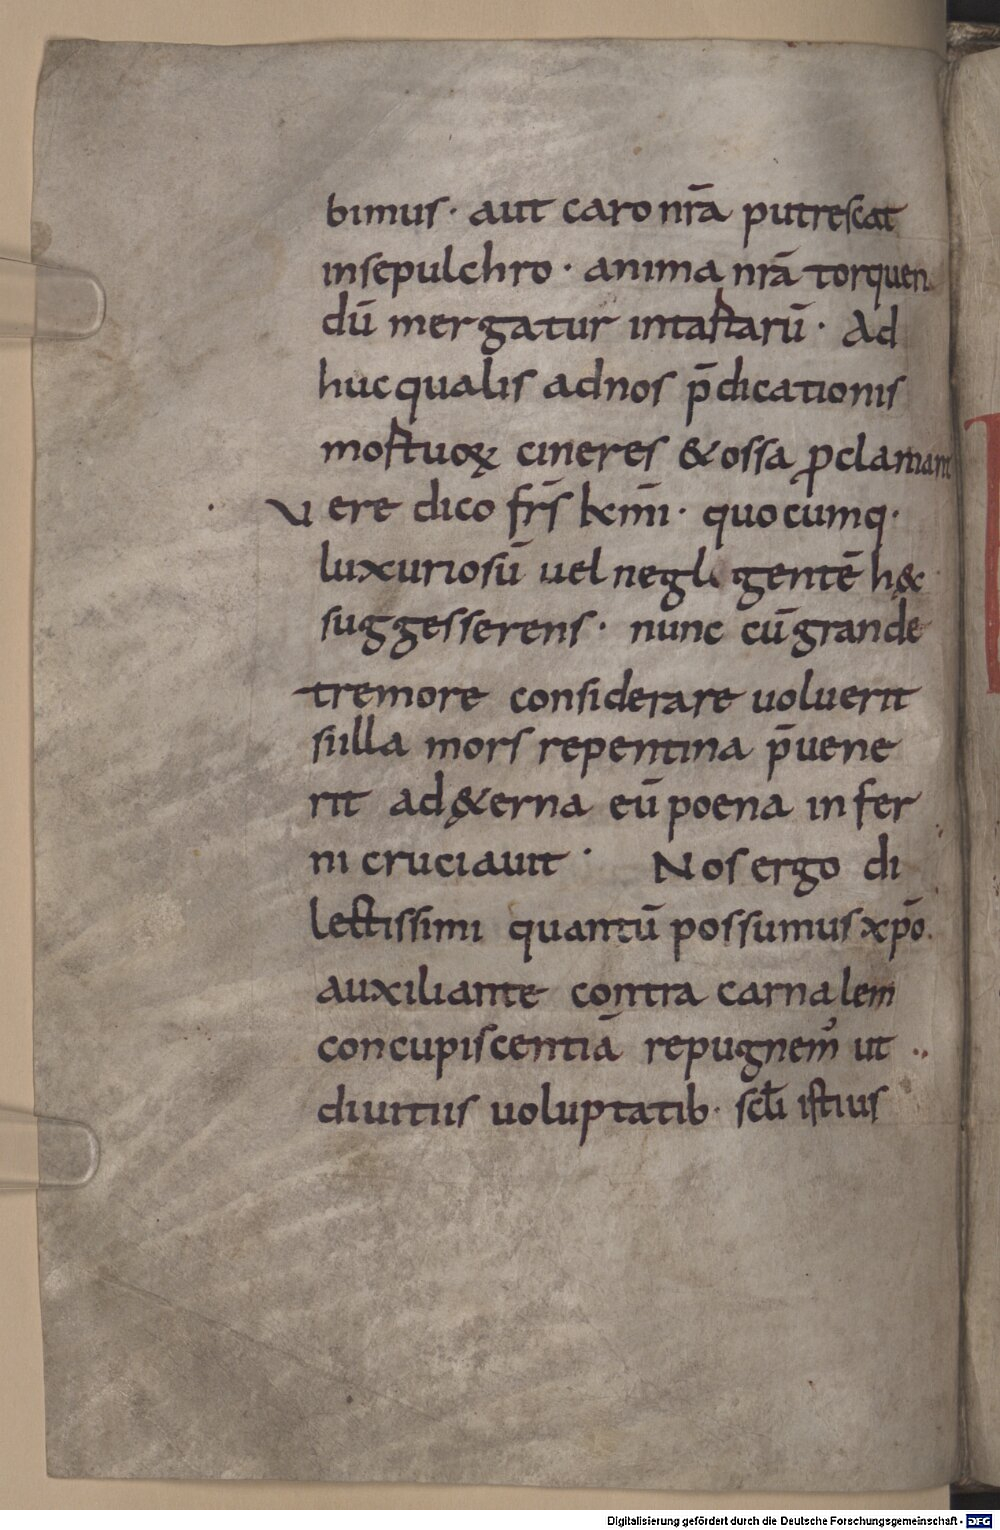 bimus · aut caro nr̄a putrescat
insepulchro · anima nr̄a torquen
dū mergatur intartarū · Ad
huc qualis adnos p̄dicationis
mortuoꝝ cineres & ossa ꝓclamant
Vere dico fr̄s k̄m̄i · quocumq ·
luxuriosū uel negligentē h&
suggesserens · nunc cū grande
tremore considerare uoluerit
siilla mors repentina p̄uene
rit ad&erna eū poena infer
ni cruciauit · Nos ergo di
lectissimi quantū possumus xp̄o
auxiliante contra carnalem
concupiscentiā repugnem᾽ ut
diuitiis uoluptatib · scl̄i istius
Digitalisierung gefördert durch die Deutsche Forschungsgemeinschaft - DFG